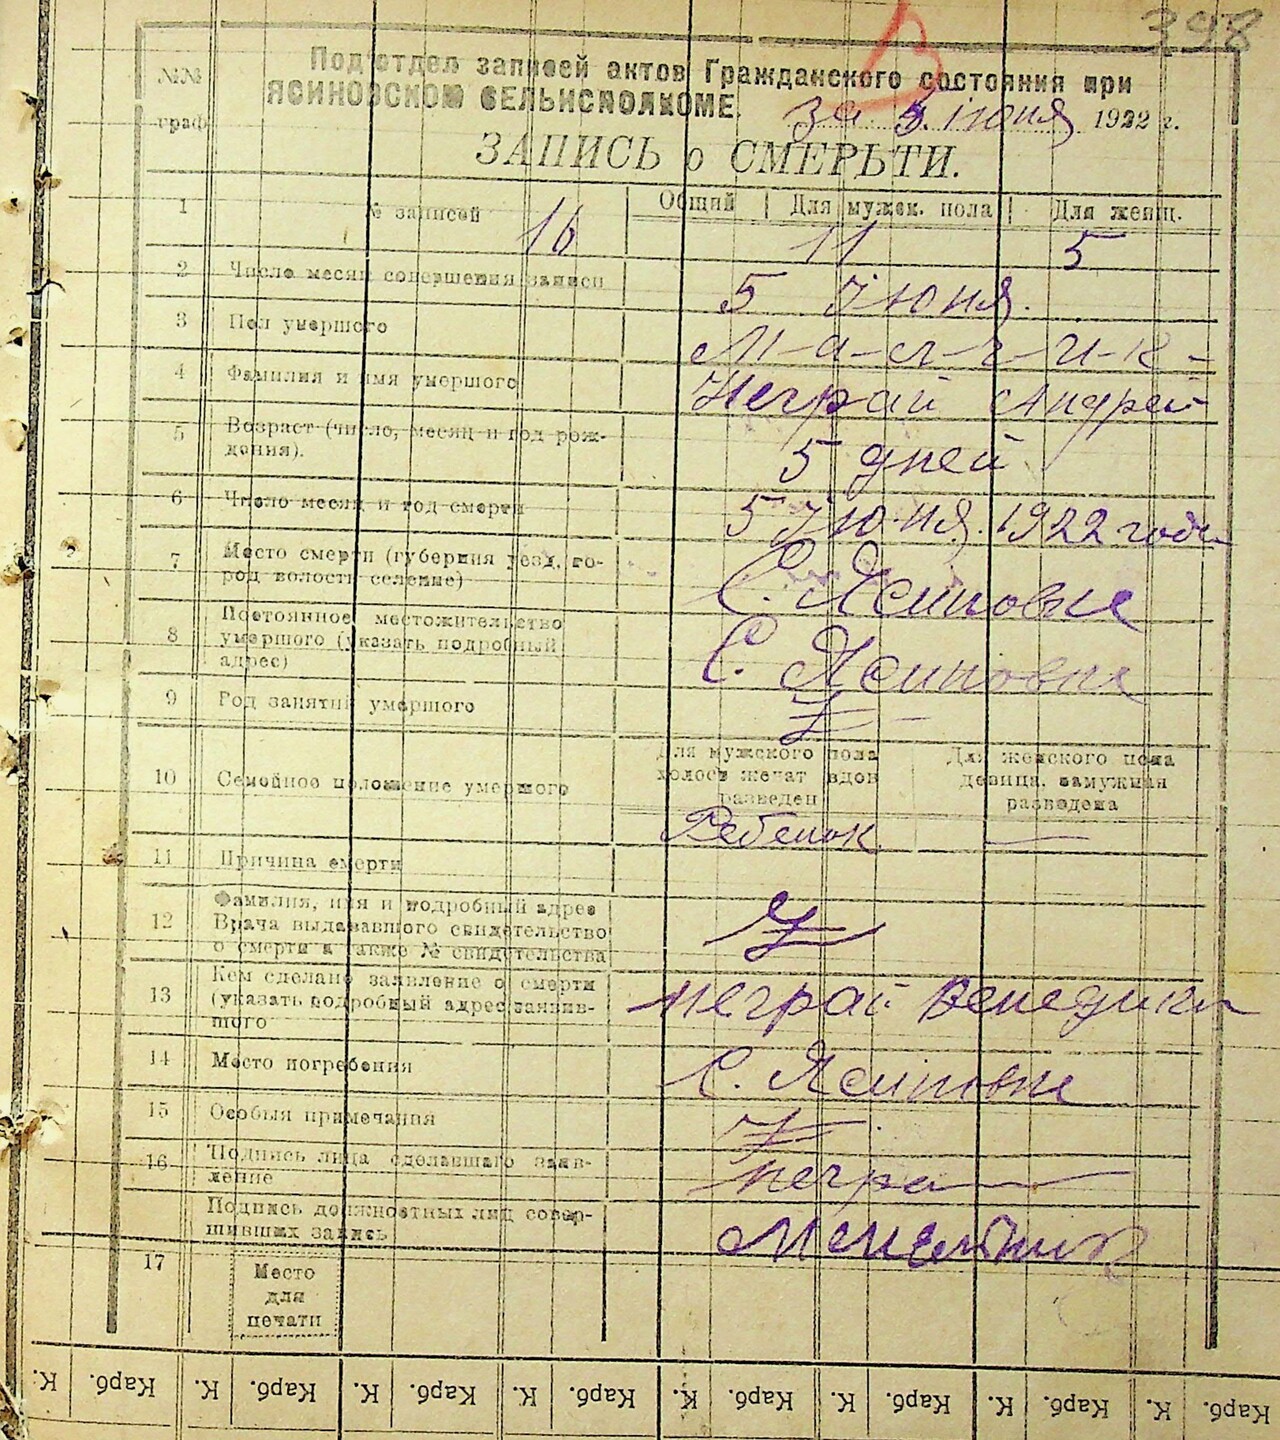 398
№№ граф
Подотдел записей актов Гражданского состояния при
ЯСИНОВСКОМ СЕЛЬИСПОЛКОМЕ.
за 5 июня 1922 г.
ЗАПИСЬ о СМЕРЬТИ.
1 № записей 16 Общий Для мужск. пола 11 Для женщ. 5
2 Число месяц совершения записи 5 Июня.
3 Пол умершого М-а-л-ч-и-к-
4 Фамилия и имя умершого Неграй Андрей
5 Возраст (число, месяц и год рож-
дения). 5 дней
6 Число месяц и год смерти 5 Июня. 1922 года
7 Место смерти (губерния уезд, го-
род волость селение) С. Ясиновке
8 Постоянное местожительство
умершого (указать подробный
адрес) С. Ясиновке
9 Род занятий умершого
10 Семейное положение умершого
Для мужского пола
холост женат вдов
разведен
Ребенок
Для женского пола
девица, замужная
разведена
—
11 Причина смерти
12 Фамилия, имя и подробный адрес
Врача выдававшого свидетельство
о смерти а также № свидетельства
13 Кем сделано заявление о смерти
(указать подробный адрес заявив-
шого Неграй Венедикт
14 Место погребения С. Ясиновке
15 Особыя примечания
16 Подпись лица сделавшаго заяв-
ление Негра
17 Подпись должностных лиц совер-
шивших запись
Место
для
печати
К. Карб. К. Карб. К. Карб. К. Карб. К. Карб. К. Карб. К. Карб. К. Карб.